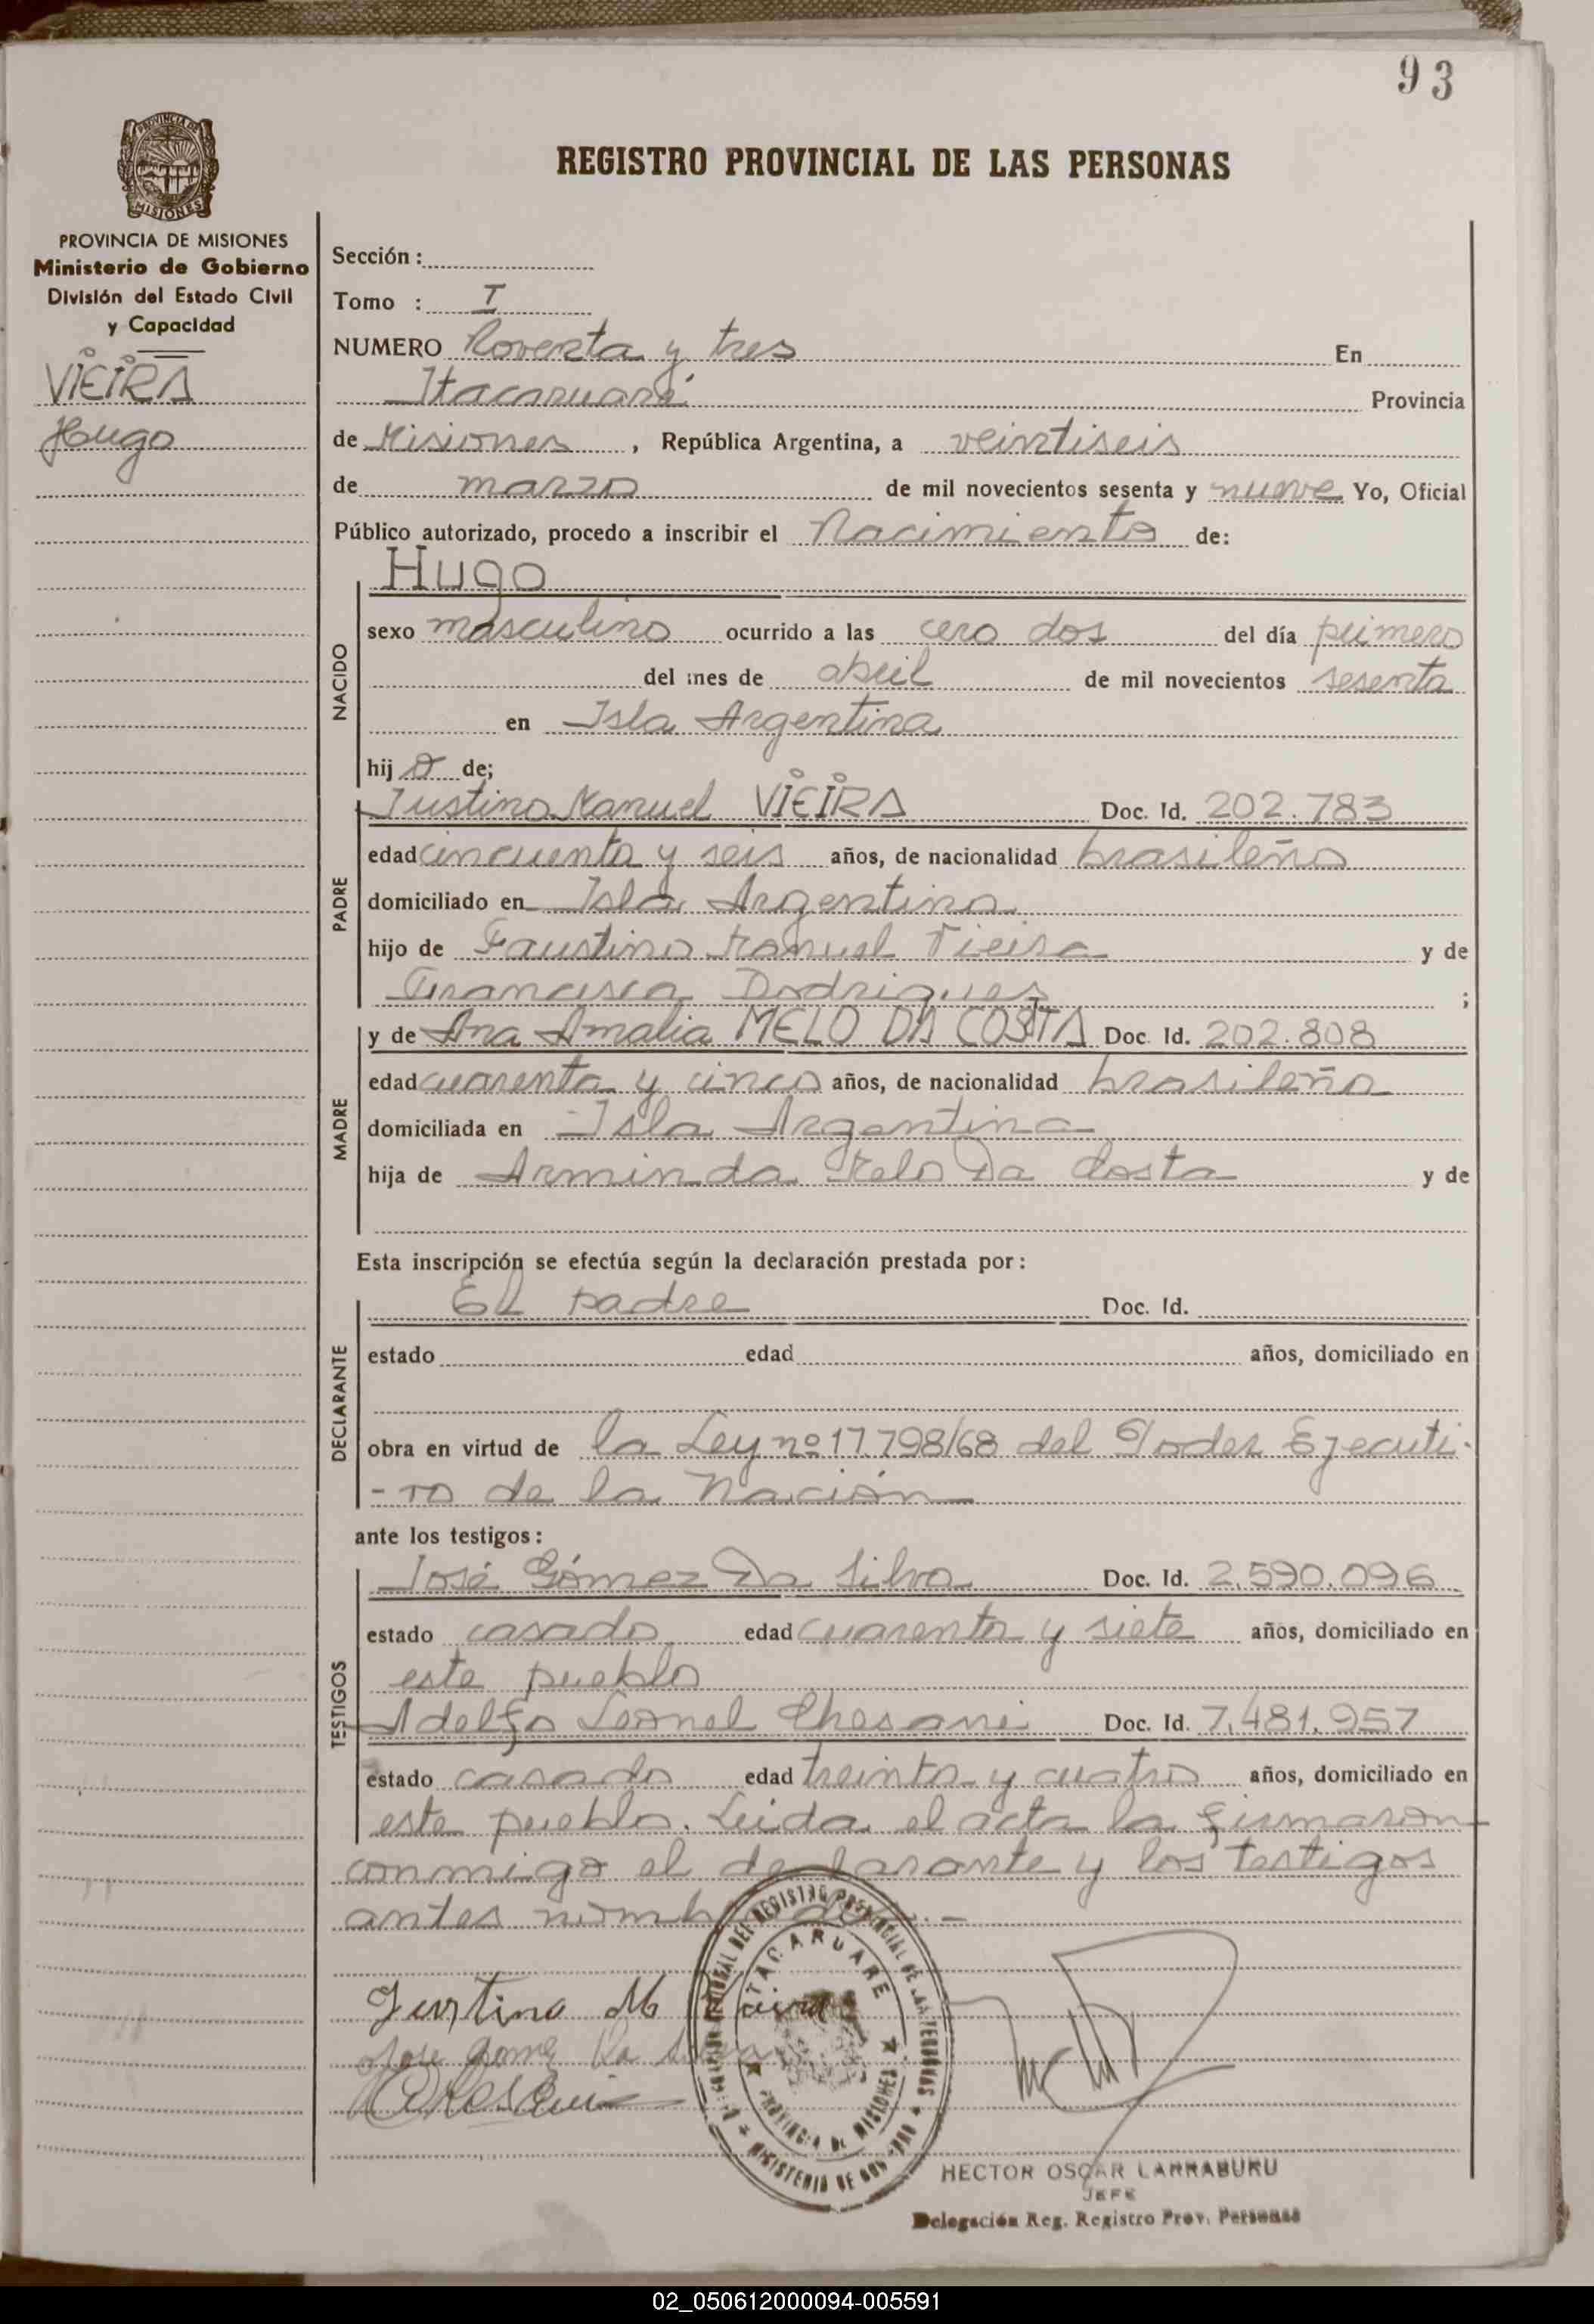 93
PROVINCIA DE MISIONES
REGISTRO PROVINCIAL DE LAS PERSONAS
PROVINCIA DE MISIONES
Ministerio de Gobierno
División del Estado Civil
y Capacidad
VIEIRA
Hugo
Sección :
Tomo : I
NUMERO Noventa y tres En
Itacaruaré Provincia
de Misiones, República Argentina, a veintiseis
de marzo de mil novecientos sesenta y nueve Yo, Oficial
Público autorizado, procedo a inscribir el Nacimiento de:
NACIDO
Hugo
sexo masculino ocurrido a las cero dos del día primero
del mes de abril de mil novecientos sesenta
en Isla Argentina
hijo de;
PADRE
Justino Manuel VIEIRA Doc. Id. 202.783
edad cincuenta y seis años, de nacionalidad brasileño
domiciliado en Isla Argentina
hijo de Faustino Manuel Vieira y de
Francisca Rodrigues ;
MADRE
y de Ana Amalia MELO DA COSTA Doc. Id. 202.808
edad cuarenta y cinco años, de nacionalidad brasileña
domiciliada en Isla Argentina
hija de Arminda Melo Da Costa y de
Esta inscripción se efectúa según la declaración prestada por:
DECLARANTE
El padre Doc. Id.
estado edad años, domiciliado en
obra en virtud de la Ley nº 17.798/68 del Poder Ejecuti-
-vo de la Nación
ante los testigos:
TESTIGOS
José Gómez Da Silva Doc. Id. 2.590.096
estado casado edad cuarenta y siete años, domiciliado en
este pueblo
Adelfo Leonel Chesani Doc. Id. 7.481.957
estado casado edad treinta y cuatro años, domiciliado en
este pueblo. Leida el acta la firmaron
conmigo el declarante y los testigos
antes nombrados.-
Justino M Vieira
Jose Gomez Da Silva
ITACARUARE
PROVINCIA DE MISIONES
HECTOR OSCAR LARRABURU
JEFE
Delegación Reg. Registro Prov. Personas
02_050612000094-005591